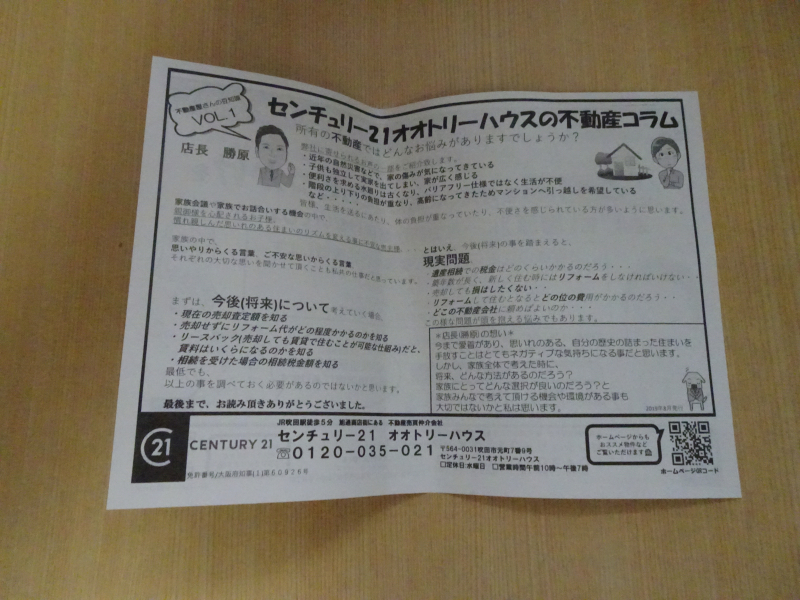 不動産屋さんの豆知識
VOL.1
センチュリー21オオトリーハウスの不動産コラム
所有の不動産ではどんなお悩みがありますでしょうか？
店長 勝原
弊社に寄せられるお声の一部をご紹介致します。
・近年の自然災害などで、家の傷みが気になってきている
・子供も独立して実家を出てしまい、家が広く感じる
・便利さを求める水廻りは古くなり、バリアフリー仕様ではなく生活が不便
・階段の上り下りの負担が重なり、高齢になってきたためマンションへ引っ越しを希望している
など・・・・・
皆様、生活を送るにあたり、体の負担が重なっていたり、不便さを感じられている方が多いように思います。
家族会議や家族でお話合いする機会の中で、
両御様を心配されるお子様。
慣れ親しんだ思いれのある住まいのリズムを変える事に不安な
家族の中で、
思いやりからくる言葉、ご不安な思いからくる言葉、
それぞれの大切な思いを聞かせて頂くことも私共の仕事だと思っています。
まずは、今後(将来)について考えていく場合、
・現在の売却査定額を知る
・売却せずにリフォーム代がどの程度かかるのかを知る
・リースバック(売却しても賃貸で住むことが可能な仕組み)だと、
賃料はいくらになるのかを知る
・相続を受けた場合の相続税金額を知る
最低でも、
以上の事を調べておく必要があるのではないかと思います。
最後まで、お読み頂きありがとうございました。
とはいえ、今後(将来)の事を踏まえると、
現実問題、
・遺産相続での税金はどのくらいかかるのだろう・・・
・築年数が長く、新しく住む時にはリフォームをしなければいけない・・・
・売却しても損はしたくない・・・
・リフォームして住むとなるとどの位の費用がかかるのだろう・・
・どこの不動産会社に頼めばよいのか・・・・
この様な問題が頭を抱える悩みでもあります。
＊店長(勝原)の想い＊
今まで愛着があり、思いれのある、自分の歴史の詰まった住まいを
手放すことはとてもネガティブな気持ちになる事だと思います。
しかし、家族全体で考えた時に、
将来、どんな方法があるのだろう？
家族にとってどんな選択が良いのだろう？と
家族みんなで考えて頂ける機会や環境がある事も
大切ではないかと私は思います。
C21
CENTURY 21
JR吹田駅徒歩5分 旭通商店街にある 不動産売買仲介会社
センチュリー21 オオトリーハウス
☏0120-035-021
〒564-0031吹田市元町7番9号
センチュリー21オオトリーハウス
□定休日:水曜日 □営業時間午前10時～午後7時
ホームページからも
おススメ物件など
ご覧いただけます
ホームページQRコード